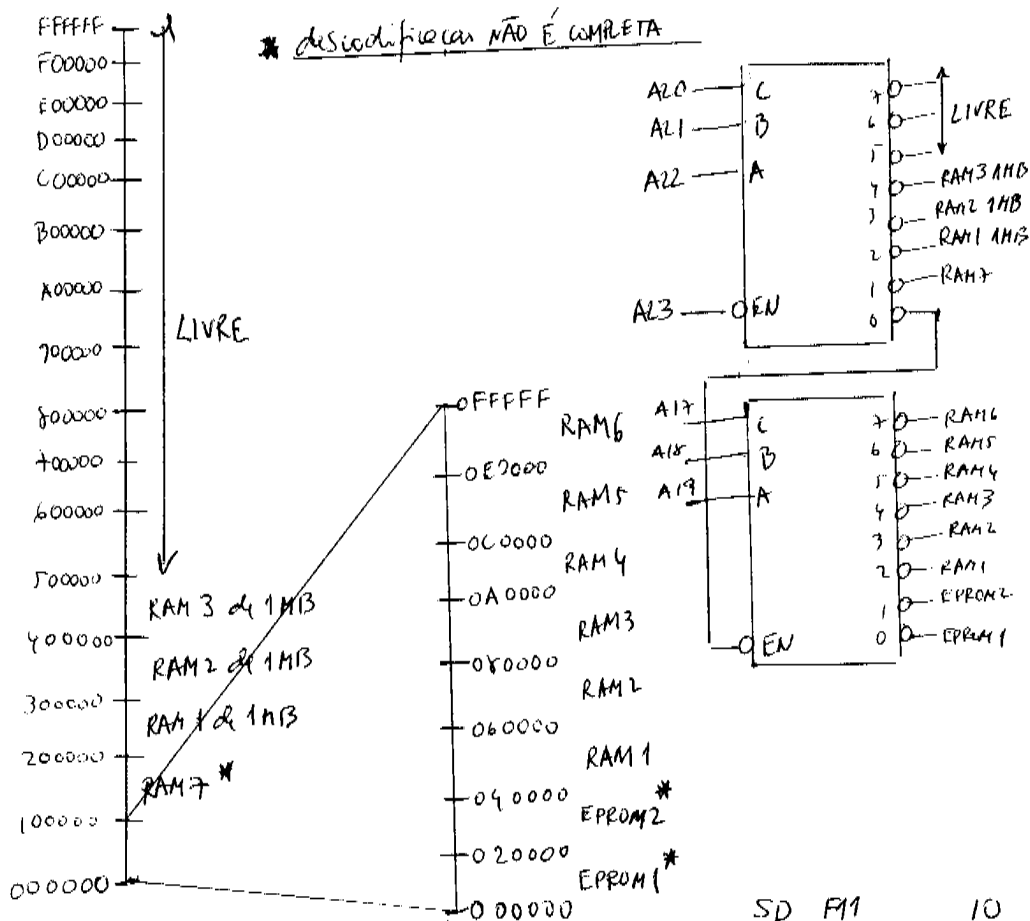 * descodificacao NÃO É COMPLETA
FFFFFF
F00000
E00000
D00000
C00000
B00000
A00000
900000
800000
700000
600000
500000
400000
300000
200000
100000
000000
LIVRE
RAM 3 de 1MB
RAM 2 de 1MB
RAM 1 de 1MB
RAM7 *
0FFFFF
0E0000
0C0000
0A0000
080000
060000
040000
020000
000000
RAM6
RAM5
RAM4
RAM3
RAM2
RAM1
EPROM2 *
EPROM1 *
A20 C
A21 B
A22 A
A23 EN
7
6
5
LIVRE
4 RAM3 1MB
3 RAM2 1MB
2 RAM1 1MB
1 RAM7
0
A17 C
A18 B
A19 A
EN
7 RAM6
6 RAM5
5 RAM4
4 RAM3
3 RAM2
2 RAM1
1 EPROM2
0 EPROM1
SD F11 10